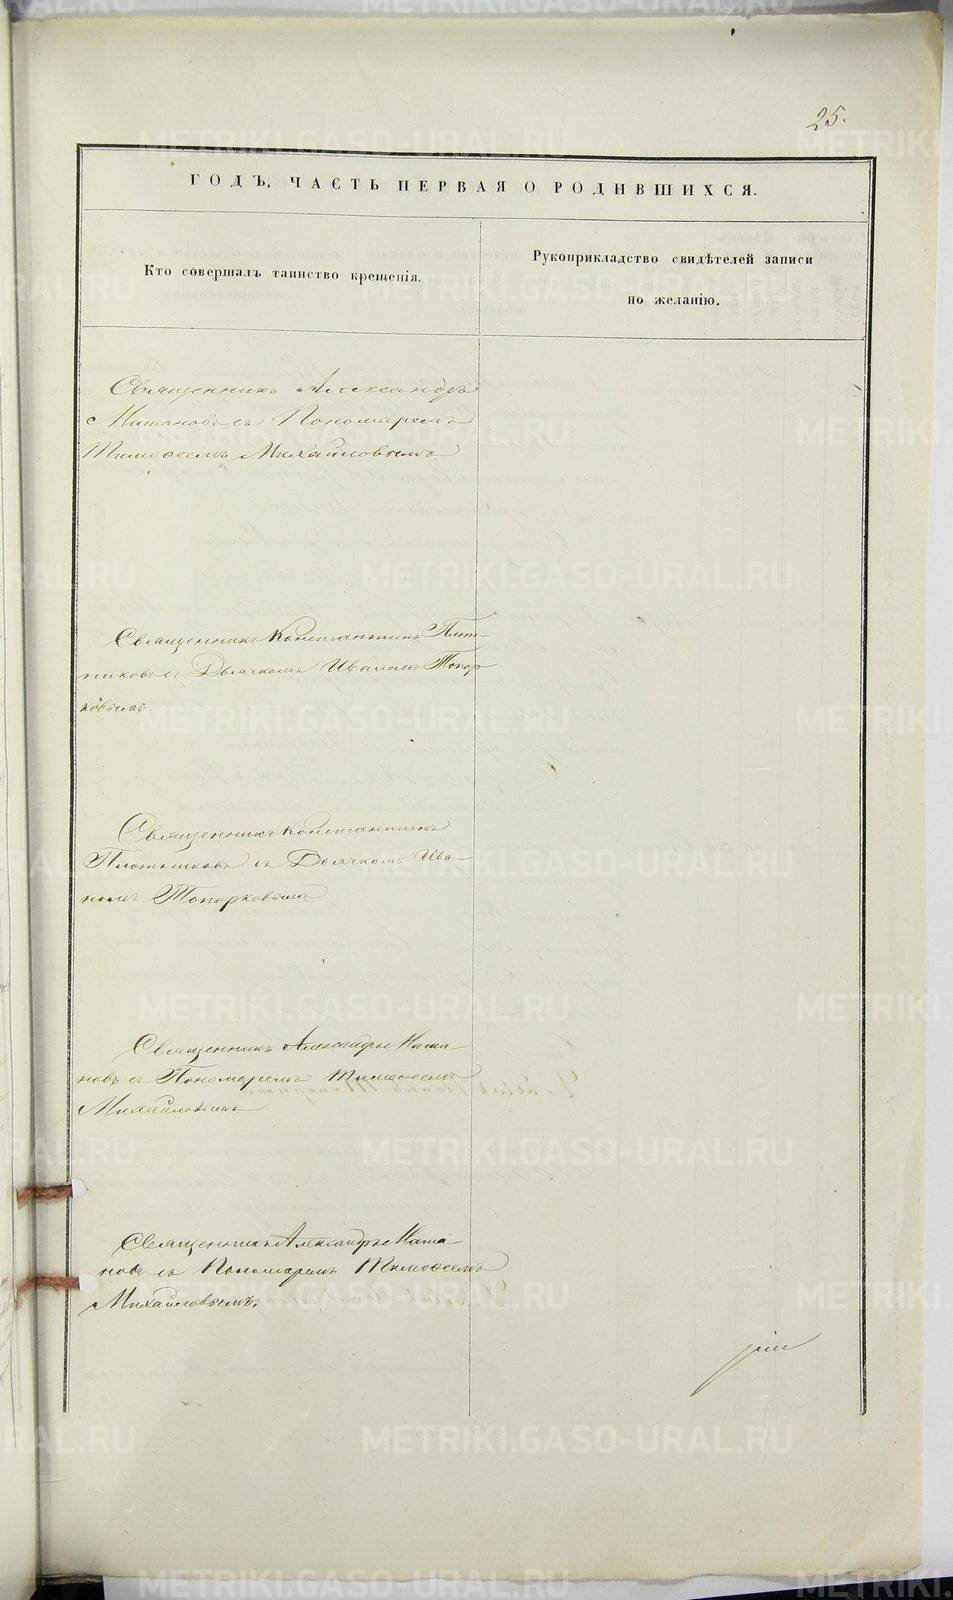 25.
ГОДЪ, ЧАСТЬ ПЕРВАЯ О РОДИВШИХСЯ.
Кто совершалъ таинство крещенія.
Рукоприкладство свидѣтелей записи
по желанію.
Священникъ Александръ
Кашановъ съ Пономаремъ
Тимоѳеемъ Михайловымъ.
Священникъ Константинъ Плот-
никовъ съ Дьячкомъ Иваномъ Топор
ковымъ.
Священникъ Константинъ
Плотниковъ съ Дьячкомъ Ива-
номъ Топорковымъ.
Священникъ Александръ Каша-
новъ съ Пономаремъ Тимоѳеемъ
Михайловымъ.
Священникъ Александръ Каша
новъ съ Пономаремъ Тимоѳеемъ
Михайловымъ.
METRIKI.GASO-URAL.RU